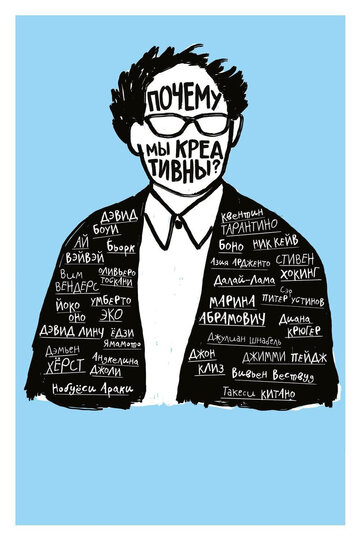 ПОЧЕМУ
МЫ КРЕА
ТИВНЫ?
ДЭВИД
БОУИ
АЙ
ВЭЙВЭЙ
Бьорк
Вим
ВЕНДЕРС
ОЛИВЬЕРО
ТОСКАНИ
ЙОКО
ОНО
УМБЕРТО
ЭКО
ДЭВИД ЛИНЧ
ЁДЗИ
Ямамото
Дэмьен
ХЁРСТ
Анджелина
ДЖОЛИ
Нобуёси Араки
Квентин
ТАРАНТИНО
БОНО
НИК КЕЙВ
Азия АРДЖЕНТО
СТИВЕН
ХОКИНГ
Далай-Лама
Сэр
ПИТЕР УСТИНОВ
МАРИНА
АБРАМОВИЧ
Диана
КРЮГЕР
Джулиан Шнабель
ДЖОН
КЛИЗ
ДЖИММИ ПЕЙДЖ
Вивьен Вествуд
Такеси КИТАНО